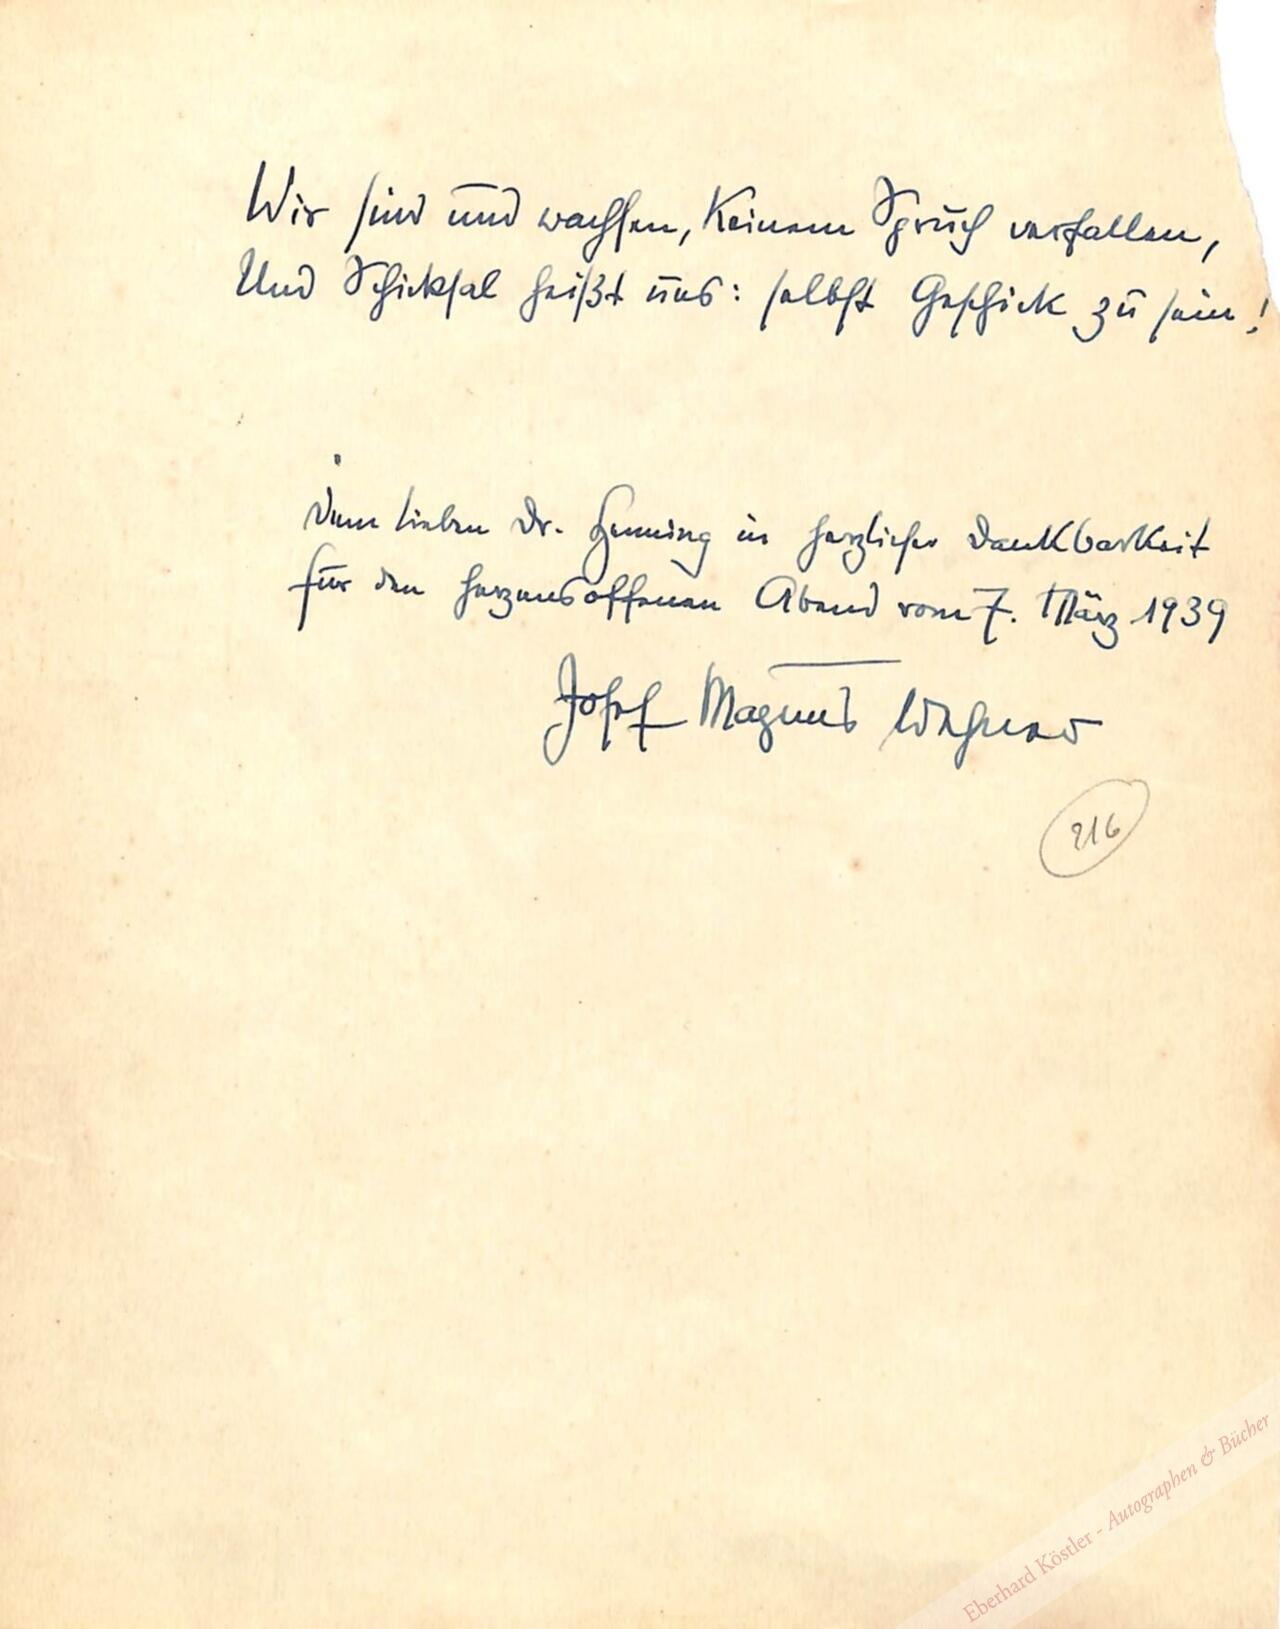 Wir sind und wachsen, keinem Spruch verfallen,
Und Schicksal heißt uns: selbst Geschick zu sein!
Dem lieben Dr. Henning in herzlicher Dankbarkeit
für den herzensoffenen Abend vom 7. März 1939
Josef Magnus Wehner
216
Eberhard Köstler - Autographen & Bücher